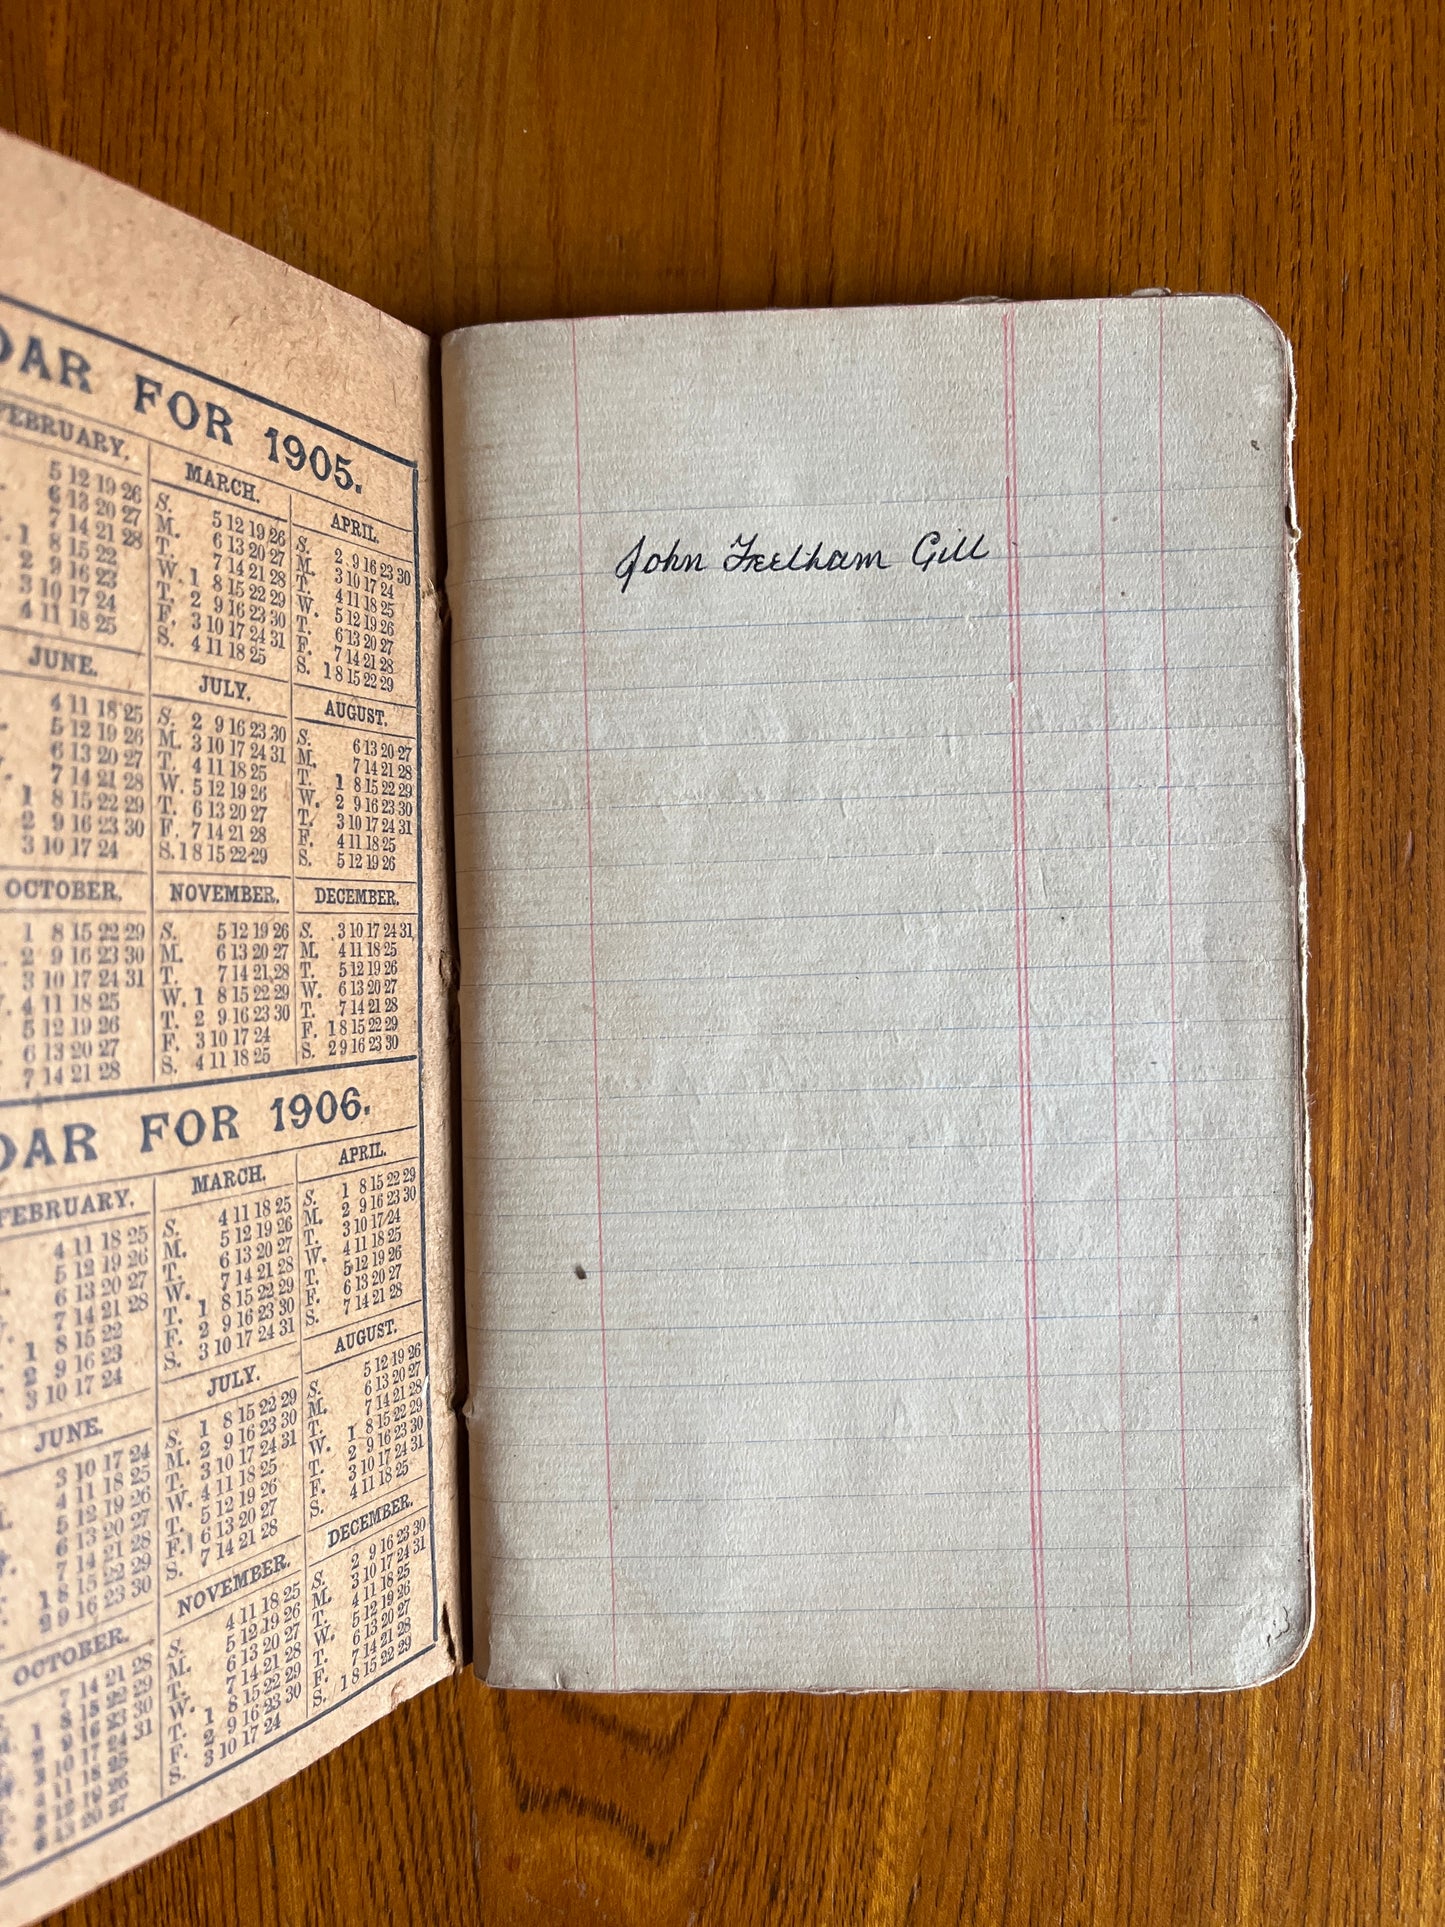 DAR FOR 1905.
FEBRUARY.
5 12 19 26
6 13 20 27
7 14 21 28
1 8 15 22
2 9 16 23
3 10 17 24
4 11 18 25
MARCH.
S. 5 12 19 26
M. 6 13 20 27
T. 7 14 21 28
W. 1 8 15 22 29
T. 2 9 16 23 30
F. 3 10 17 24 31
S. 4 11 18 25
APRIL.
S. 2 9 16 23 30
M. 3 10 17 24
T. 4 11 18 25
W. 5 12 19 26
T. 6 13 20 27
F. 7 14 21 28
S. 1 8 15 22 29
JUNE.
4 11 18 25
5 12 19 26
6 13 20 27
7 14 21 28
1 8 15 22 29
2 9 16 23 30
3 10 17 24
JULY.
S. 2 9 16 23 30
M. 3 10 17 24 31
T. 4 11 18 25
W. 5 12 19 26
T. 6 13 20 27
F. 7 14 21 28
S. 1 8 15 22 29
AUGUST.
S. 6 13 20 27
M. 7 14 21 28
T. 1 8 15 22 29
W. 2 9 16 23 30
T. 3 10 17 24 31
F. 4 11 18 25
S. 5 12 19 26
OCTOBER.
1 8 15 22 29
2 9 16 23 30
3 10 17 24 31
4 11 18 25
5 12 19 26
6 13 20 27
7 14 21 28
NOVEMBER.
S. 5 12 19 26
M. 6 13 20 27
T. 7 14 21 28
W. 1 8 15 22 29
T. 2 9 16 23 30
F. 3 10 17 24
S. 4 11 18 25
DECEMBER.
S. 3 10 17 24 31
M. 4 11 18 25
T. 5 12 19 26
W. 6 13 20 27
T. 7 14 21 28
F. 1 8 15 22 29
S. 2 9 16 23 30
DAR FOR 1906.
FEBRUARY.
4 11 18 25
5 12 19 26
6 13 20 27
7 14 21 28
1 8 15 22
2 9 16 23
3 10 17 24
MARCH.
S. 4 11 18 25
M. 5 12 19 26
T. 6 13 20 27
W. 7 14 21 28
T. 1 8 15 22 29
F. 2 9 16 23 30
S. 3 10 17 24 31
APRIL.
S. 1 8 15 22 29
M. 2 9 16 23 30
T. 3 10 17 24
W. 4 11 18 25
T. 5 12 19 26
F. 6 13 20 27
S. 7 14 21 28
JUNE.
3 10 17 24
4 11 18 25
5 12 19 26
6 13 20 27
7 14 21 28
1 8 15 22 29
2 9 16 23 30
JULY.
S. 1 8 15 22 29
M. 2 9 16 23 30
T. 3 10 17 24 31
W. 4 11 18 25
T. 5 12 19 26
F. 6 13 20 27
S. 7 14 21 28
AUGUST.
S. 5 12 19 26
M. 6 13 20 27
T. 7 14 21 28
W. 1 8 15 22 29
T. 2 9 16 23 30
F. 3 10 17 24 31
S. 4 11 18 25
OCTOBER.
7 14 21 28
1 8 15 22 29
2 9 16 23 30
3 10 17 24 31
4 11 18 25
5 12 19 26
6 13 20 27
NOVEMBER.
S. 4 11 18 25
M. 5 12 19 26
T. 6 13 20 27
W. 7 14 21 28
T. 1 8 15 22 29
F. 2 9 16 23 30
S. 3 10 17 24
DECEMBER.
S. 2 9 16 23 30
M. 3 10 17 24 31
T. 4 11 18 25
W. 5 12 19 26
T. 6 13 20 27
F. 7 14 21 28
S. 1 8 15 22 29
John Feeltham Gill